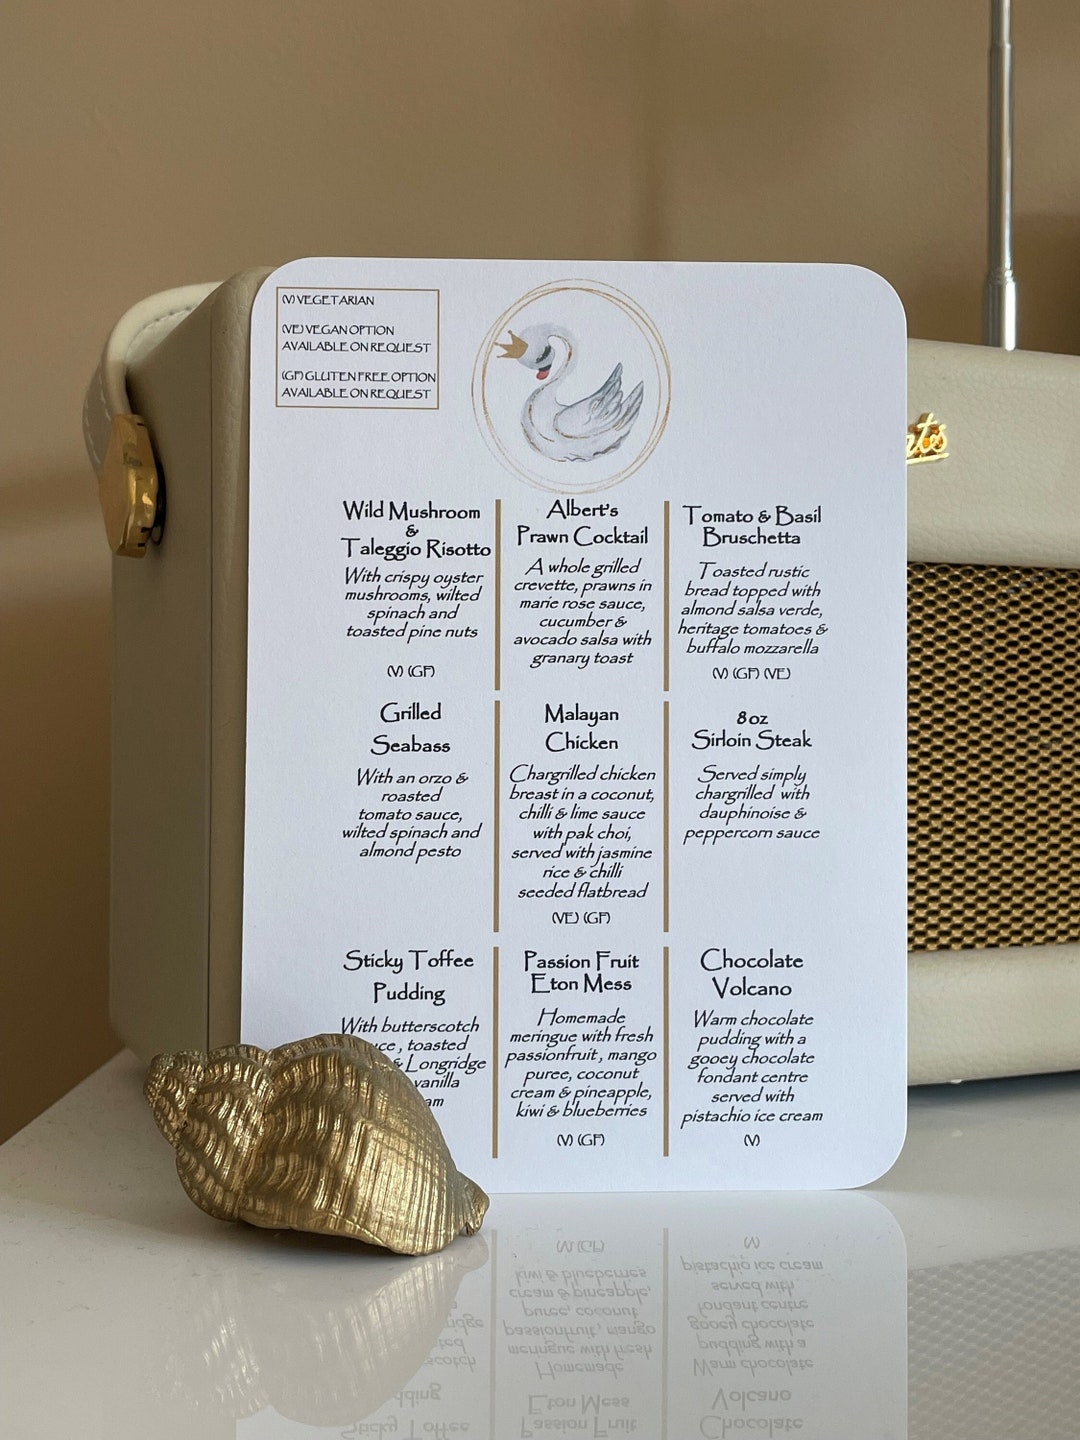 (V) VEGETARIAN
(VE) VEGAN OPTION
AVAILABLE ON REQUEST
(GF) GLUTEN FREE OPTION
AVAILABLE ON REQUEST
Wild Mushroom
&
Taleggio Risotto
With crispy oyster
mushrooms, wilted
spinach and
toasted pine nuts
(V) (GF)
Albert's
Prawn Cocktail
A whole grilled
crevette, prawns in
marie rose sauce,
cucumber &
avocado salsa with
granary toast
Tomato & Basil
Bruschetta
Toasted rustic
bread topped with
almond salsa verde,
heritage tomatoes &
buffalo mozzarella
(V) (GF) (VE)
Grilled
Seabass
With an orzo &
roasted
tomato sauce,
wilted spinach and
almond pesto
Malayan
Chicken
Chargrilled chicken
breast in a coconut,
chilli & lime sauce
with pak choi,
served with jasmine
rice & chilli
seeded flatbread
(VE) (GF)
8oz
Sirloin Steak
Served simply
chargrilled with
dauphinoise &
peppercorn sauce
Sticky Toffee
Pudding
With butterscotch
, toasted
& Longridge
vanilla
Passion Fruit
Eton Mess
Homemade
meringue with fresh
passionfruit, mango
puree, coconut
cream & pineapple,
kiwi & blueberries
(V) (GF)
Chocolate
Volcano
Warm chocolate
pudding with a
gooey chocolate
fondant centre
served with
pistachio ice cream
(V)